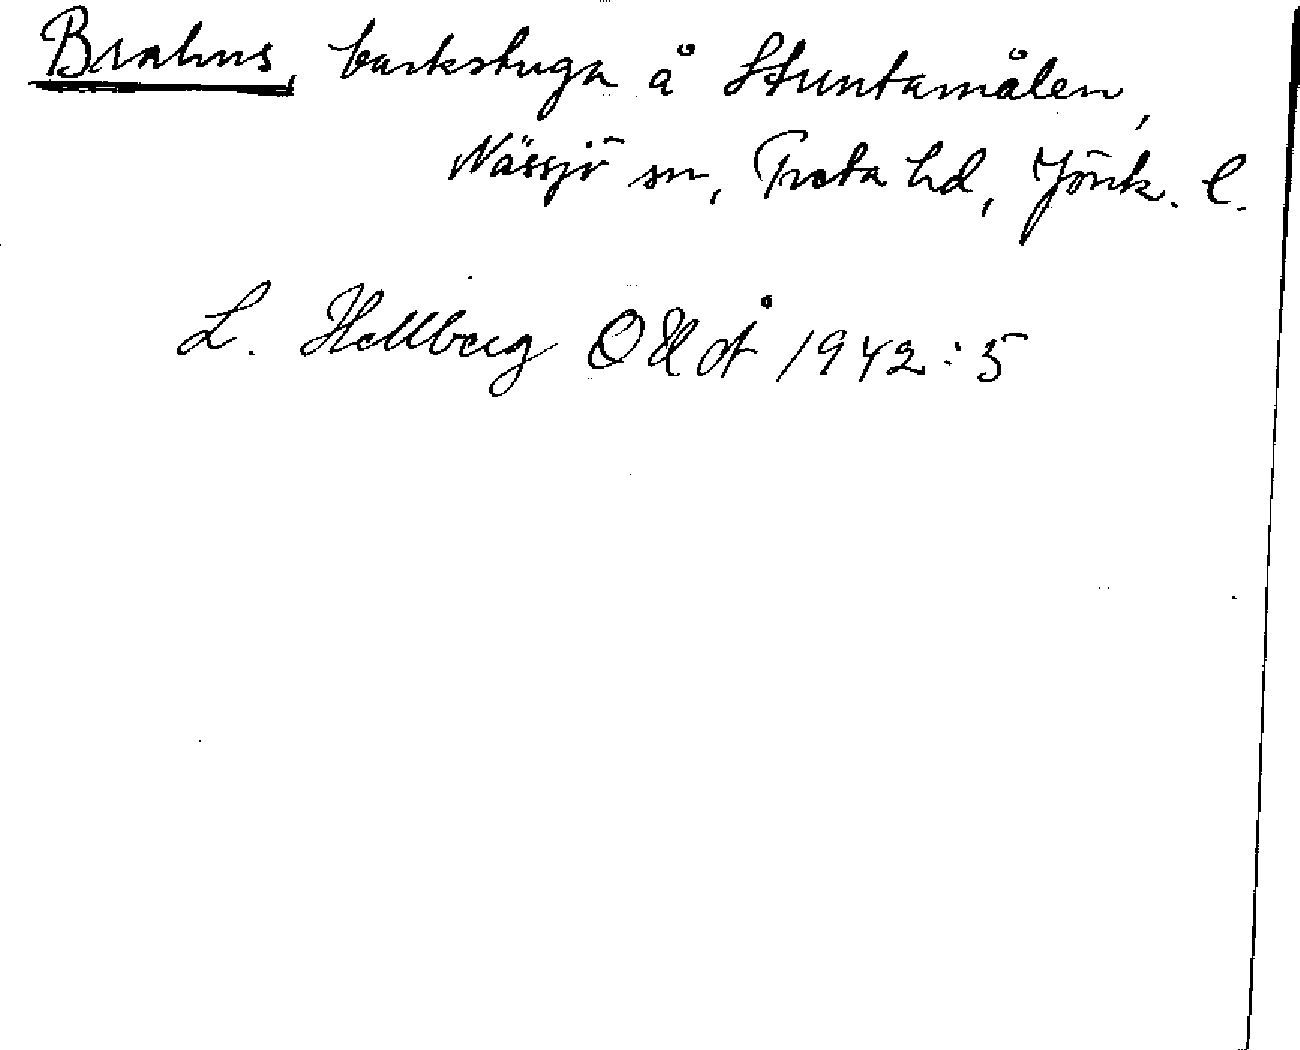 Brahns, backstuga å Stuntamålen,
Nässjö sn, Tveta hd, Jönk. l.
L. Hellberg OUÅ 1942:5